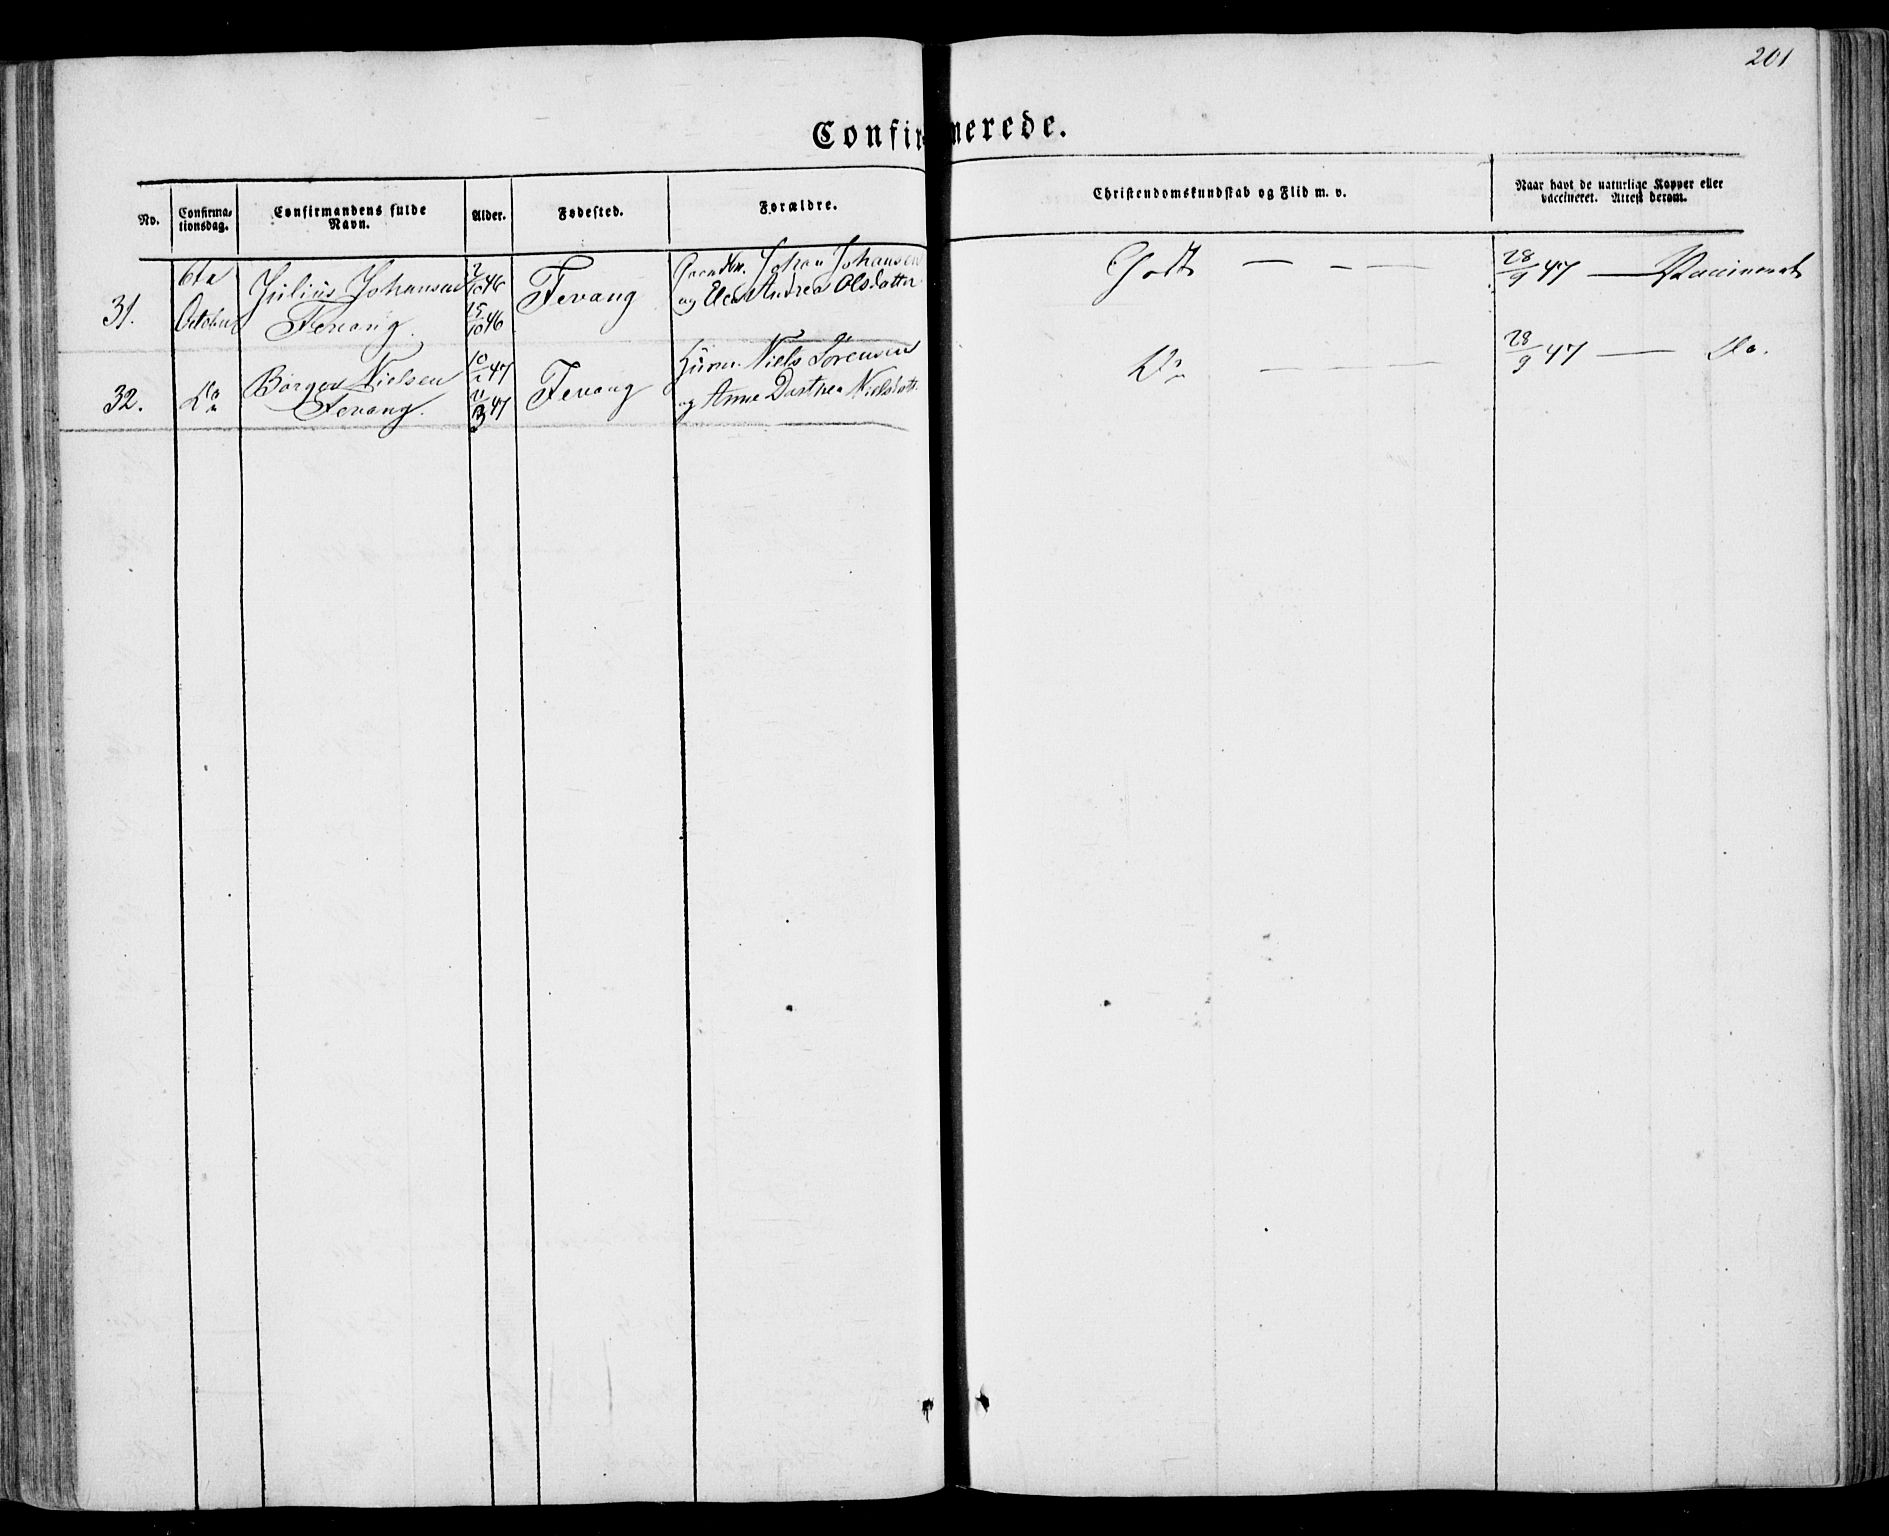 201
Confirmerede.
No.
Confirma-
tionsdag.
Confirmandens fulde
Navn.
Alder.
Fødested.
Forældre.
Christendomskundskab og Flid m. v.
Naar havt de naturlige Kopper eller
vaccineret. Attest derom.
31.
6te
October
Julius Johansen
Fevang.
2/10 46
15/10 46
Fevang
Johan Johansen
og Andrea Olsdatter
Godt — — — —
28/9 47 — Vaccineret
32.
Do
Børger Nielsen
Fevang.
47
47
Fevang
Niels Sørensen
og Anne Dorthea Nielsdatt.
Do — — — —
28/9 47 — Do.